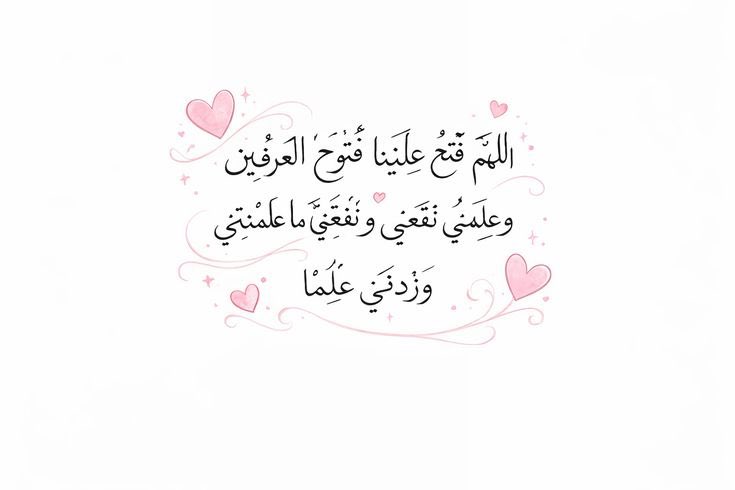 اللهّم فّتحُ علَينا فُتوحَ العرفُين
وعلِمنُي نقَعني و نَفقِنيَّ ما علمْنتِني
وَزْدنَني علُمْا